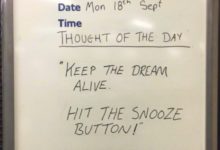 Date Mon 18th Sept
Time
THOUGHT OF THE DAY
"KEEP THE DREAM
ALIVE.
HIT THE SNOOZE
BUTTON!"